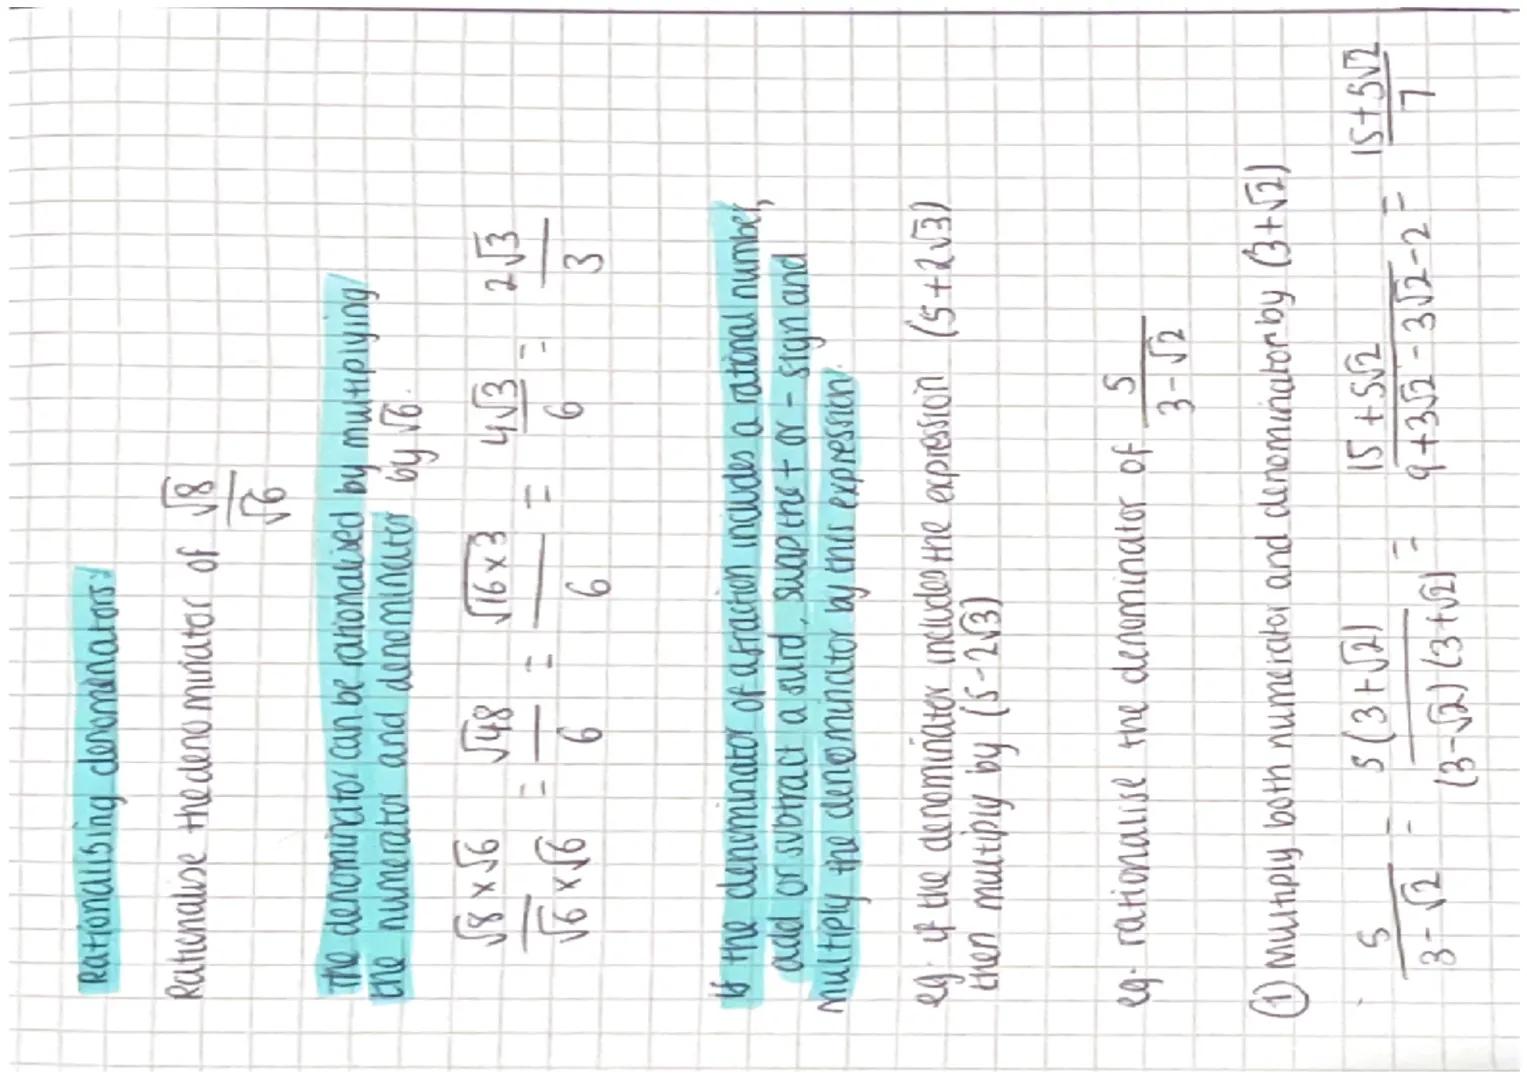 Rationalising denomenators:
Rationalise the denominator of √8/√6
The denominator can be rationalised by multiplying
the numerator and denominator by √6.
√8 x √6/√6 x √6 = √48/6 = √16 x 3/6 = 4√3/6 = 2√3/3
If the denominator of a fraction includes a rational number,
add or subtract a surd, swap the + or - sign and
multiply the denominator by this expression.
eg. if the denominator includes the expression (5+2√3)
then multiply by (5-2√3)
eg. rationalise the denominator of 5/3-√2
① Multiply both numerator and denominator by (3+√2)
5/3-√2 = 5(3+√2)/(3-√2)(3+√2) = 15+5√2/9+3√2-3√2-2 = 15+5√2/7